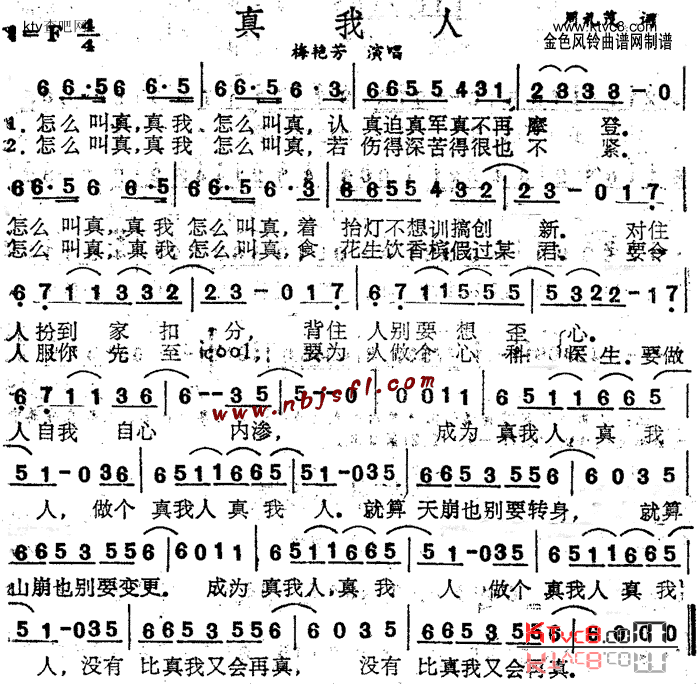 ktv查吧网
www.ktvc8.com
真我人
1=F 4/4
梅艳芳 演唱
金色风铃曲谱网制谱
6 6·5 6 6·5 | 6 6·5 6 6·3 | 6 6 5 5 4 3 1 | 2 3 3 3 – 0
1. 怎么叫真,真我 怎么叫真, 认 真迫真军真不再 摩 登.
2. 怎么叫真,真我 怎么叫真, 若 伤得深苦得很也 不 紧.
6 6·5 6 6·5 | 6 6·5 6·3 | 6 6 5 5 4 3 2 | 2 3 – 0 1 7
怎么 叫真, 真我 怎么叫真, 着 抬灯不想训搞创 新. 对住
怎么 叫真, 真我 怎么叫真, 食 花生饮香槟假过某 君. 要令
6 7 1 1 3 3 2 | 2 3 – 0 1 7 | 6 7 1 1 5 5 5 | 5 3 2 2 – 1 7
人扮到 家 扣 分, 背住 人别要 想 歪 心.
人服你 先 至 cool, 要为 人做个 心 科 医生. 要做
6 7 1 1 3 6 | 6 – – 3 5 | 5 – – 0 | 0 0 1 1 | 6 5 1 1 6 6 5
www.nbjsfl.com
人自我 自心 内渗, 成为 真我人 真 我
5 1 – 0 3 6 | 6 5 1 1 6 6 5 | 5 1 – 0 3 5 | 6 6 5 3 5 5 6 | 6 0 3 5
人, 做个 真我人 真 我 人. 就算 天崩也别要转身, 就算
6 6 5 3 5 5 6 | 6 0 1 1 | 6 5 1 1 6 6 5 | 5 1 – 0 3 5 | 6 5 1 1 6 6 5
山崩也别要变更. 成为 真我人,真 我 人 做个 真我人 真 我
5 1 – 0 3 5 | 6 6 5 3 5 5 6 | 6 0 3 5 | 6 6 5 3 5 5 6
人, 没有 比真我又会再真, 没有 比真我又会再真.
KTvc8.com